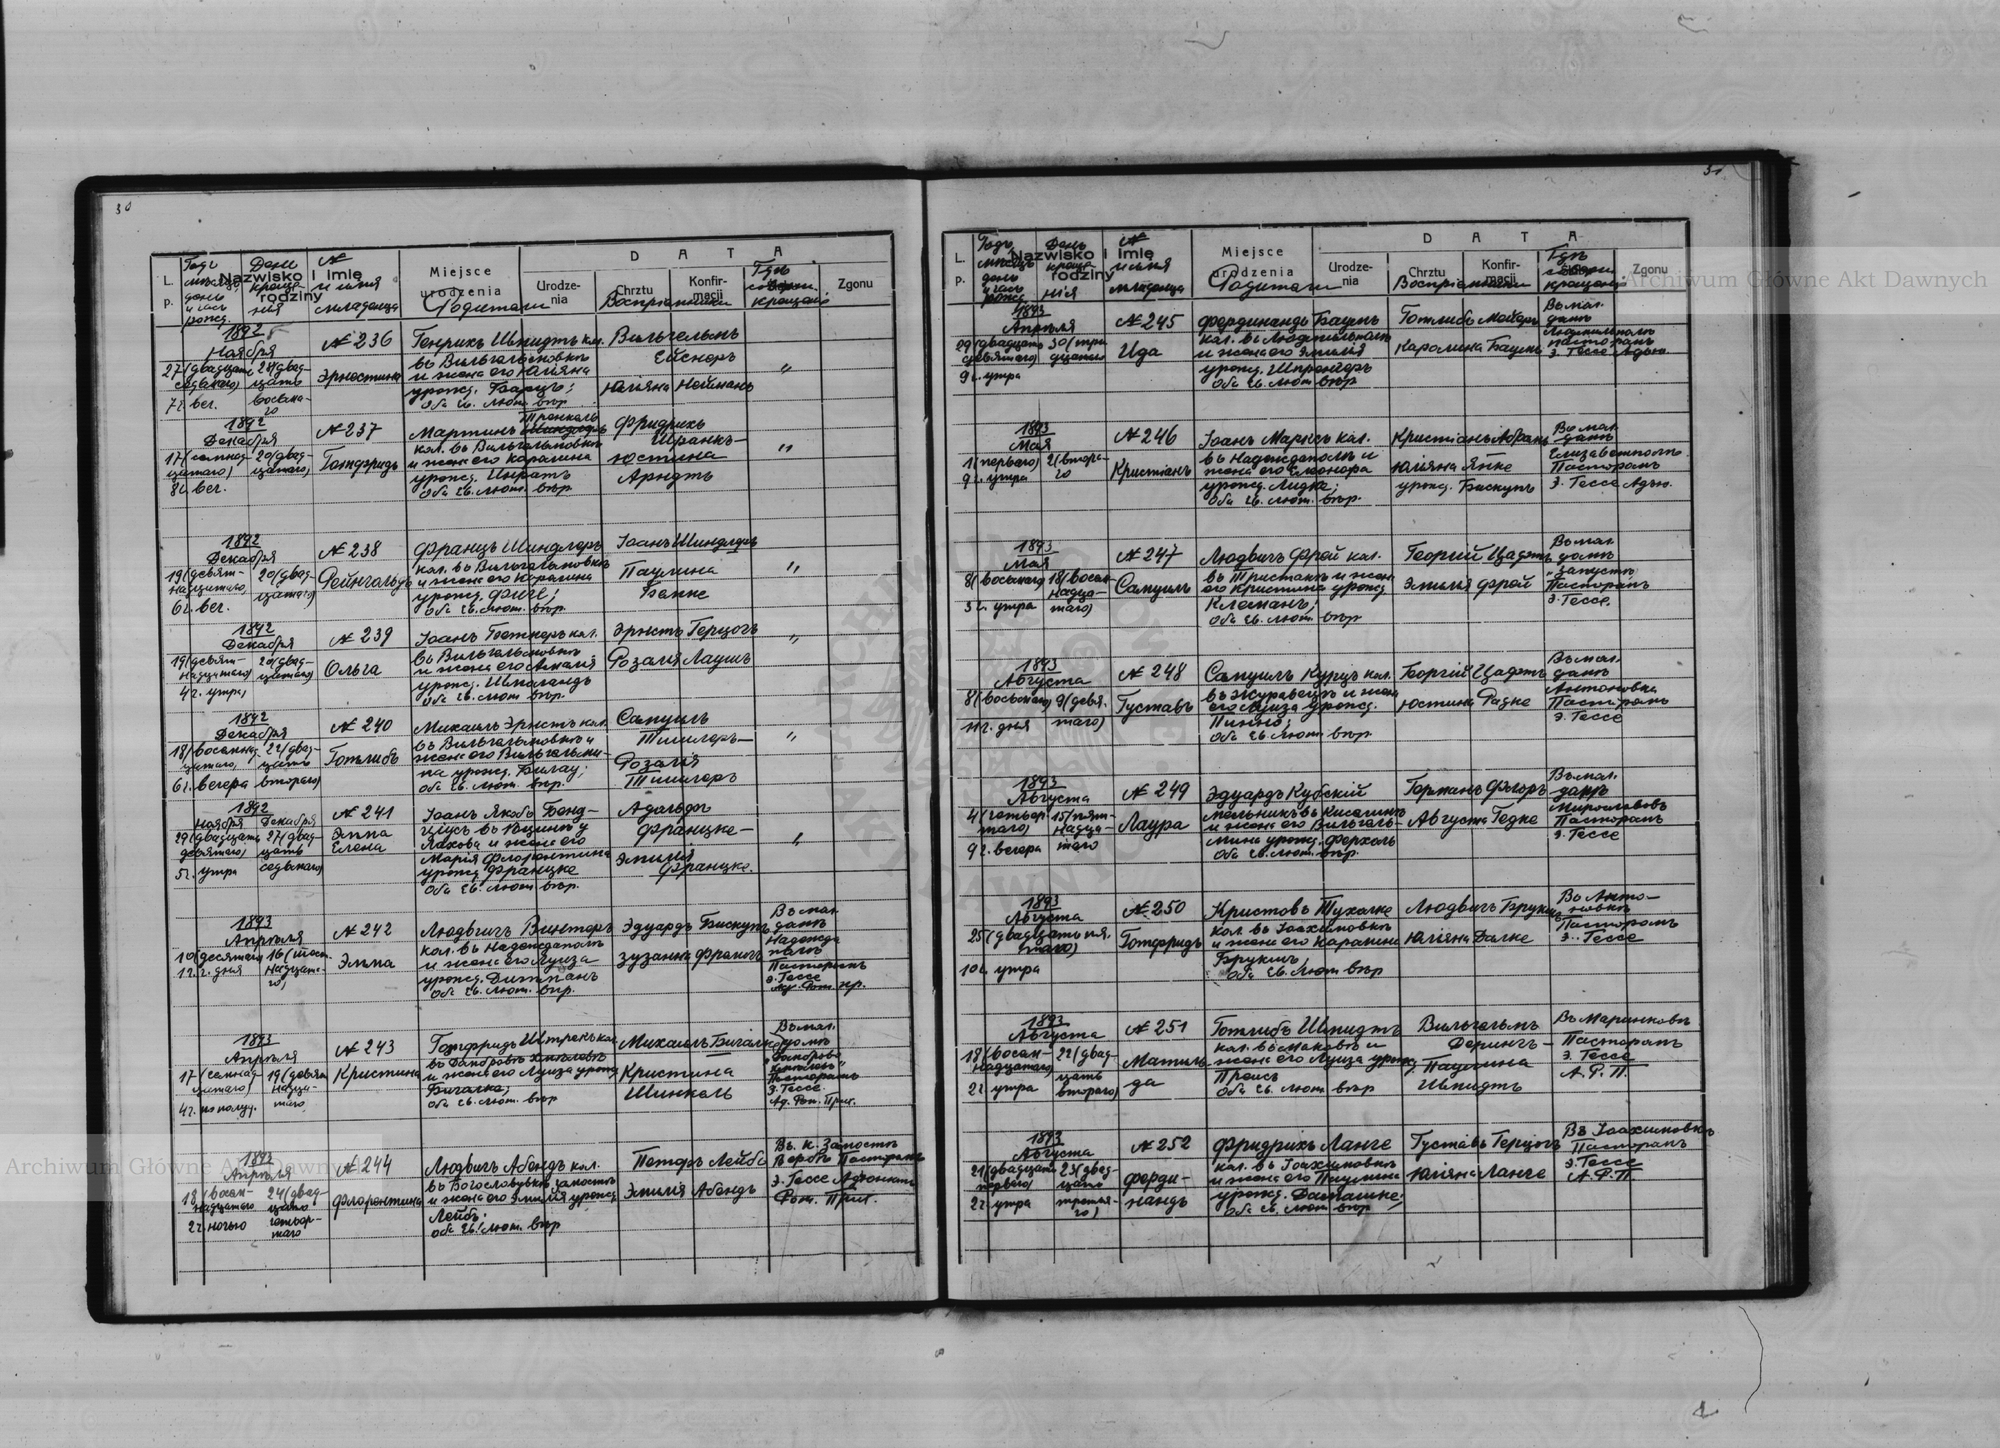 30
L. p.
Nazwisko i Imię rodziny
Miejsce urodzenia
D A T A
Urodzenia
Chrztu
Konfirmacji
Zgonu
Годъ мѣсяцъ день и часъ рожд.
День крещенія
№ и имя младенца
Родители
Воспріемники
Гдѣ крещено
1892
Ноября
27 (двадцать седьмаго)
7 ч. веч.
28 (двадцать восьмаго
№ 236
Эрнестина
Генрихъ Шмидтъ кол.
въ Вильгельмовкѣ
и жена его Юліяна
урожд. Барцъ;
оба Ев. Лют. вѣр.
Вильгельмъ
Юліяна Нейманъ
„
1892
Декабря
17 (семнадцатаго)
8 ч. веч.
20 (двадцатаго)
№ 237
Готфридъ
Мартинъ
кол. въ Вильгельмовкѣ
и жена его Каралина
урожд.
оба Ев. Лют. вѣр.
Фридрихъ
Шранкъ —
Юстина
Арндтъ
„
1892
Декабря
19 (девятнадцатаго)
6 ч. веч.
20 (двадцатаго)
№ 238
Рейнгольдъ
Францъ Шиндлеръ
кол. въ Вильгельмовкѣ
и жена его Каралина
урожд.
оба Ев. Лют. вѣр.
Іоанъ Шиндлеръ
Паулина
„
1892
Декабря
19 (девятнадцатаго)
4 ч. утра,
20 (двадцатаго)
№ 239
Ольга
Іоанъ кол.
въ Вильгельмовкѣ
и жена его Амалія
урожд.
оба Ев. Лют. вѣр.
Эрнстъ Герцогъ
Розалія Лаушъ
„
1892
Декабря
18 (восемнадцатаго,
6 ч. вечера
22 (двадцать втораго)
№ 240
Готлибъ
Михаилъ Эрнстъ кол.
въ Вильгельмовкѣ и
жена его Вильгельмина
урожд. Билау;
оба Ев. Лют. вѣр.
Самуилъ
Тишлеръ —
Розалія
Тишлеръ
„
1892
Ноября
29 (двадцать девятаго)
5 ч. утра
Декабря
27 (двадцать седьмаго)
№ 241
Эмма
Елена
Іоанъ Якобъ
и жена его
Марія Флорентина
урожд. Францке
оба Ев. Лют. вѣр.
Адольфъ
Францке —
Эмилія
Францке.
„
1893
Апрѣля
10 (десятаго)
12 ч. дня
16 (шестнадцатаго)
№ 242
Эмма
Людвигъ Винтеръ
кол. въ Надеждаполѣ
и жена его Луиза
урожд. Дитманъ
оба Ев. Лют. вѣр.
Эдуардъ Бискупъ
Зузанна
Въ мол.
домѣ
Надежда
полѣ
Пасторомъ
Э. Гессе
1893
Апрѣля
17 (семнадцатаго)
4 ч. по полуд.
19 (девятнадцатаго
№ 243
Кристина
Готфридъ Штрекъ кол.
и жена его Луиза урожд.
Бигалке;
оба Ев. Лют. вѣр
Михаилъ Бигалке
Кристина
Шинкель
Въ мол.
домѣ
Пасторомъ
Э. Гессе
1893
Апрѣля
18 (восемнадцатаго
2 ч. ночью
24 (двадцать четвертаго
№ 244
Флорентина
Людвигъ Абендъ кол.
въ Богословувкѣ
и жена его Эмилія урожд.
Лейбъ;
оба Ев. Лют. вѣр
Петеръ Лейбъ
Эмилія Абендъ
Пасторомъ
Э. Гессе Адъюнктъ
31
L. p.
Nazwisko i Imię rodziny
Miejsce urodzenia
D A T A
Urodzenia
Chrztu
Konfirmacji
Zgonu
Годъ мѣсяцъ день и часъ рожд.
День крещенія
№ и имя младенца
Родители
Воспріемники
Гдѣ крещено
1893
Апрѣля
29 (двадцать девятаго)
9 ч. утра
30 (тридцатаго
№ 245
Ида
Фердинандъ Баумъ
кол. въ Людмильполѣ
и жена его Эмилія
урожд. Шпренгеръ
оба Ев. Лют. вѣр
Готлибъ Мейеръ
Каралина Баумъ
Въ мол.
домѣ
Людмильполѣ
пасторомъ
Э. Гессе Адъю.
1893
Мая
1 (перваго)
9 ч. утра
2 (втораго
№ 246
Кристіанъ
Іоанъ Марксъ кол.
въ Надеждаполѣ и
жена его Елеонора
урожд. Лидке;
оба Ев. Лют. вѣр.
Кристіанъ Абрамъ
Юліяна Янке
урожд. Бискупъ
Въ мол.
домѣ
Елизаветполѣ
Пасторомъ
Э. Гессе Адъю.
1893
Мая
8 (восьмаго)
3 ч. утра
18 (восемнадцатаго)
№ 247
Самуилъ
Людвигъ Фрей кол.
въ Тристакѣ и жена
его Кристина урожд.
Клеманъ;
оба Ев. Лют. вѣр
Георгій
Эмилія Фрей
Въ мол.
домѣ
Запустѣ
Пасторомъ
Э. Гессе.
1893
Августа
8 (восьмаго)
11 ч. дня
9 (девятаго)
№ 248
Густавъ
Самуилъ Курцъ кол.
въ Журавецъ и жена
его Луиза урожд.
Пинно;
оба Ев. Лют. вѣр
Георгій
Юстина Радке
Въ мол.
домѣ
Антоновка
Пасторомъ
Э. Гессе
1893
Августа
4 (четвертаго)
9 ч. вечера
15 (пятнадцатаго
№ 249
Лаура
Эдуардъ Кубскій
мельникъ въ Киселинѣ
и жена его Вильгельмина
урожд.
оба Ев. Лют. вѣр.
Германъ Флоръ
Августа Гедке
Въ мол.
домѣ
Мирославовъ
Пасторомъ
Э. Гессе
1893
Августа
25 (двадцать пятаго)
10 ч. утра
№ 250
Готфридъ
Кристовъ Тухолке
кол. въ Іоахимовкѣ
и жена его Каралина
оба Ев. Лют. вѣр
Людвигъ
Юліяна Далке
Въ Антоновкѣ
Пасторомъ
Э. Гессе
1893
Августа
18 (восемнадцатаго)
2 ч. утра
22 (двадцать втораго)
№ 251
Матильда
Готлибъ Шмидтъ
кол. въ Маковѣ и
жена его Луиза урожд.
Преисъ
оба Ев. Лют. вѣр
Вильгельмъ
Дерингъ —
Паулина
Шмидтъ
Въ Маринковѣ
Пасторомъ
Э. Гессе
А. Ф. П.
1893
Августа
21 (двадцать перваго)
2 ч. утра
23 (двадцать третьяго)
№ 252
Фердинандъ
Фридрихъ Ланге
кол. въ Іоахимовкѣ
и жена его Паулина
урожд.
оба Ев. Лют. вѣр
Густавъ Герцогъ
Юліяна Ланге
Въ Іоахимовкѣ
Пасторомъ
Э. Гессе
А. Ф. П.
Archiwum Główne Akt Dawnych
Archiwum Główne Akt Dawnych